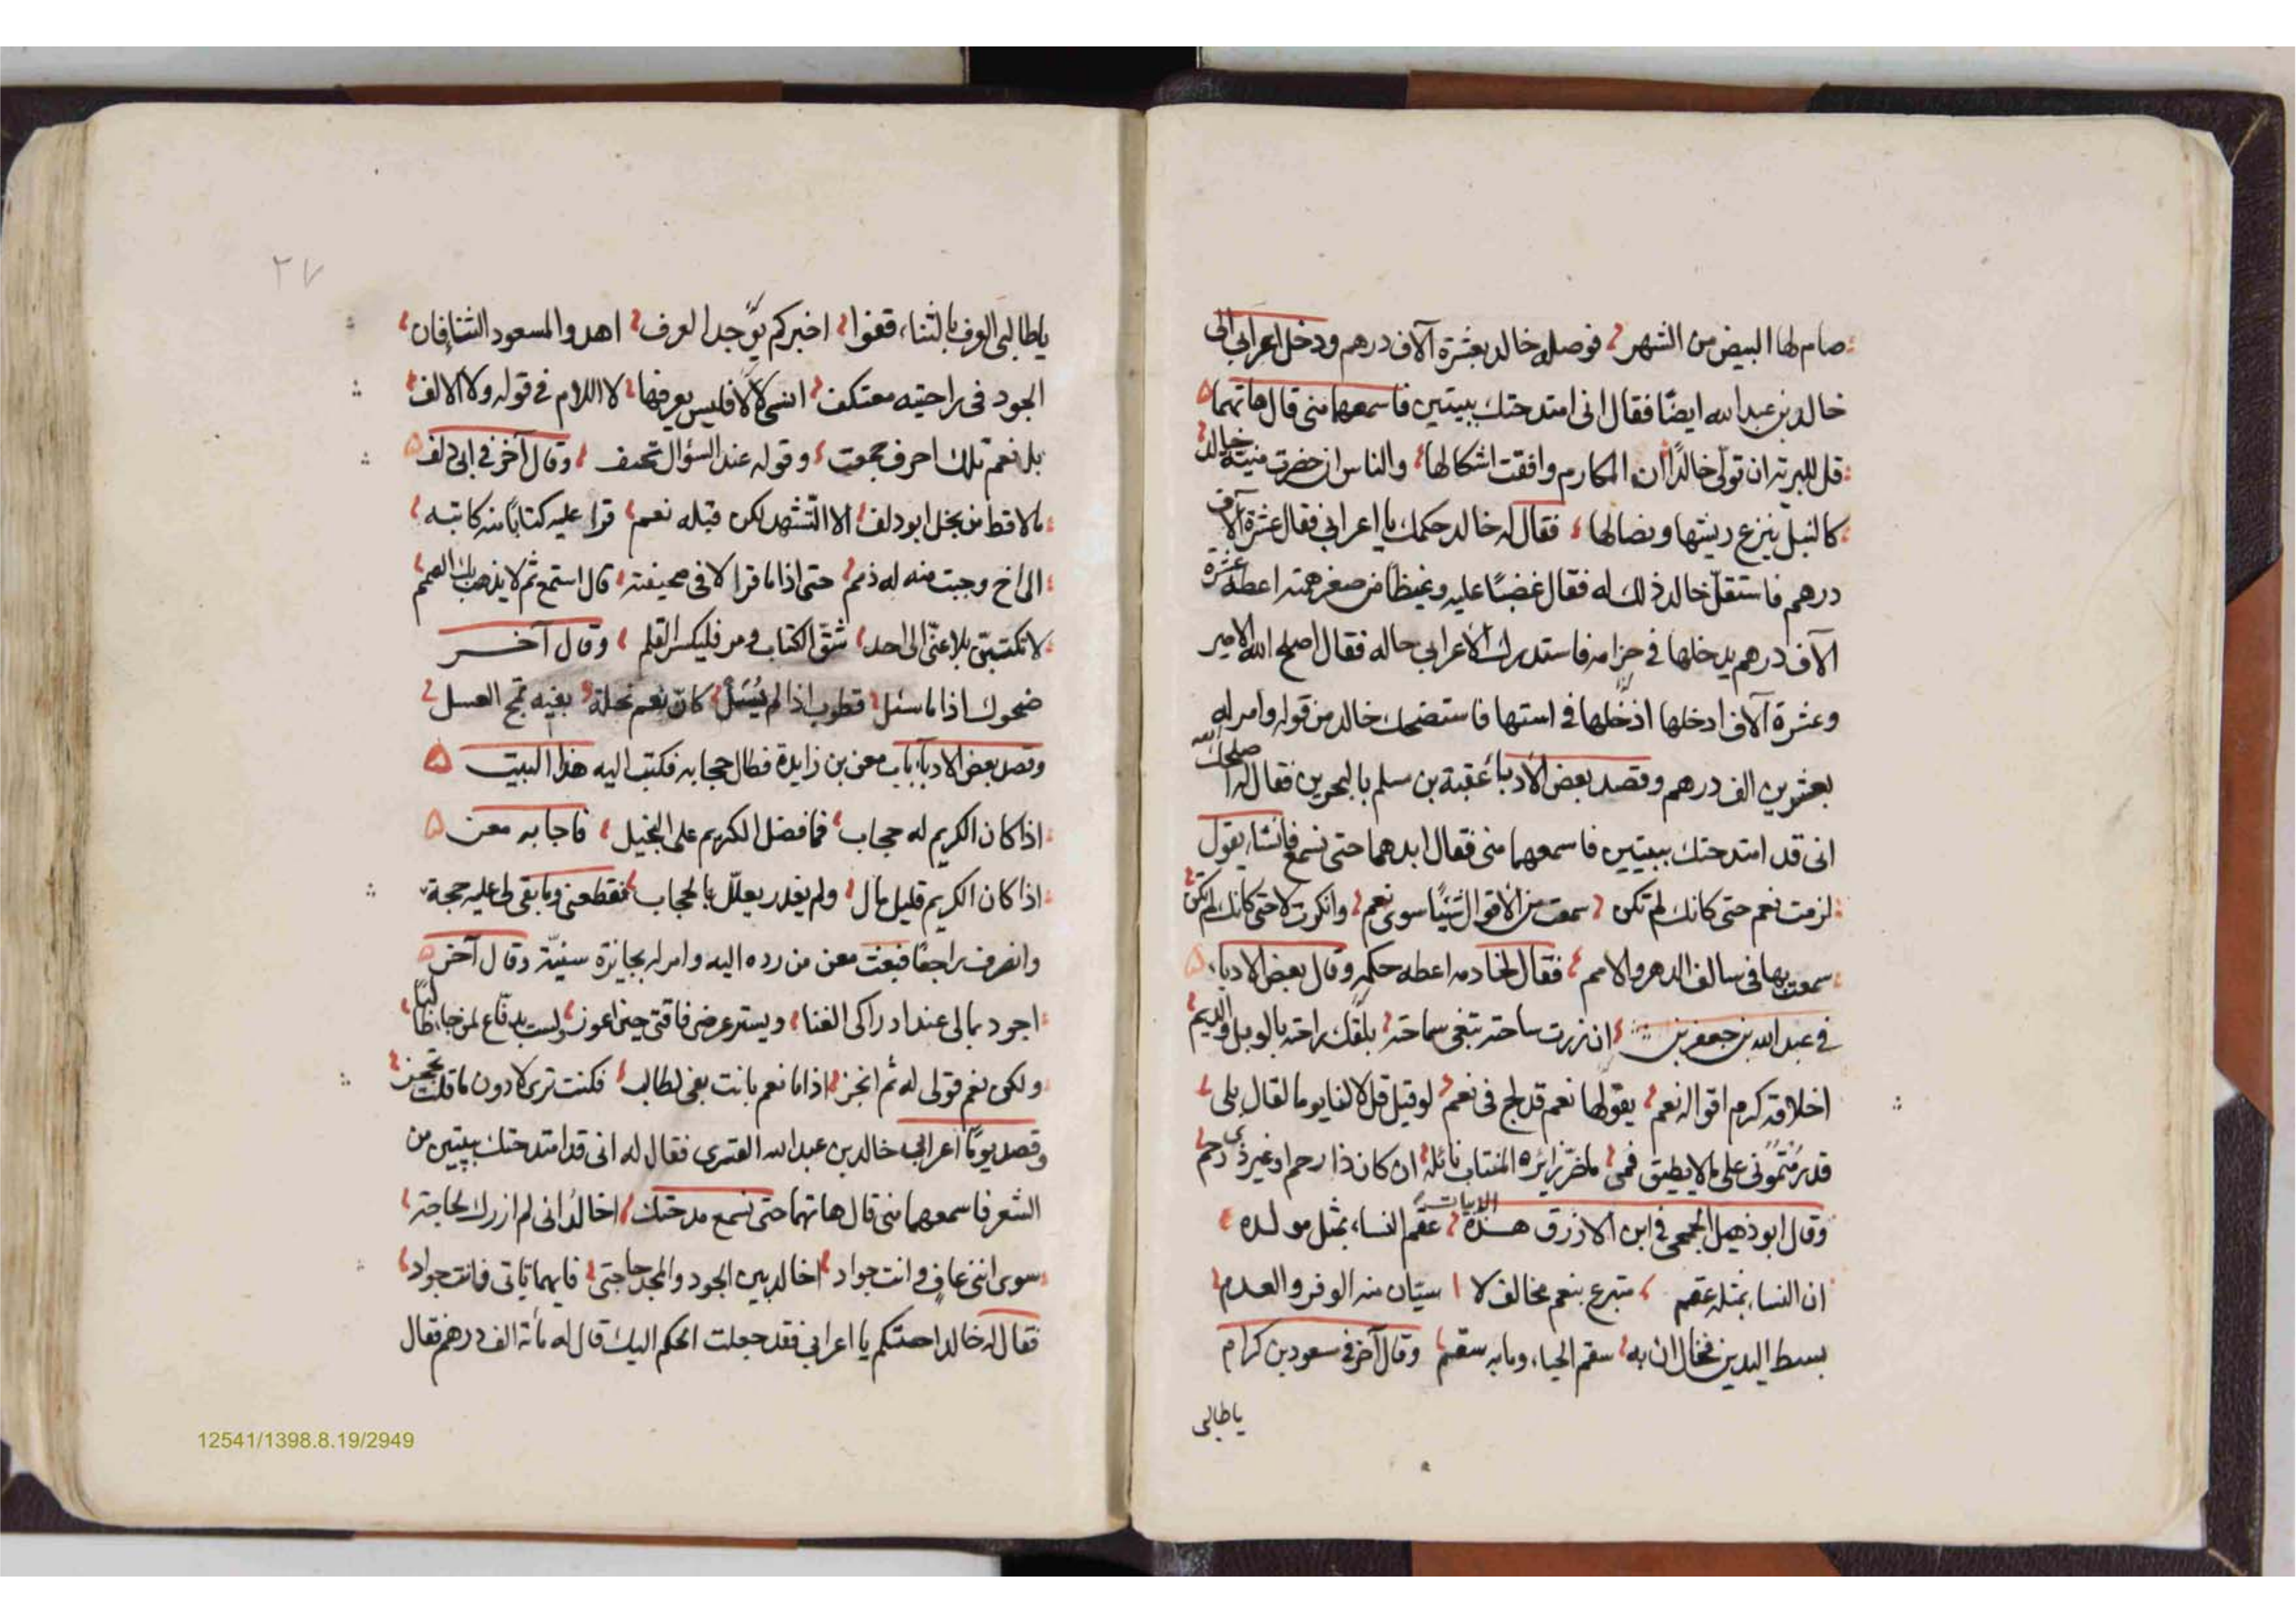 صام لها البيض من الشهر فوصله خالد بعشرة آلاف درهم ودخل اعرابي الى
خالد بن عبد الله ايضًا فقال انى امتدحتك ببيتين فاسمعهما منى قال هاتهما
قل للبرية ان تولى خالدًا ان المكارم وافقت اشكالها والناس ان حضرت منيته خالد
كالنبل ينزع ريشها ونصالها فقال له خالد حكمك يا اعرابي فقال عشرة آلاف
درهم فاستقلّ خالد ذلك له فقال غضبًا عليه وغيظًا من صغر همته اعطه عشرة
آلاف درهم يدخلها في حزامه فاستدرك الأعرابي حاله فقال اصلح الله الامير
وعشرة آلاف ادخلها في استها فاستضحك خالد من قوله وامر له
بعشرين الف درهم وقصد بعض الأدباء عقبة بن سلم بالبحرين فقال له اصلحك الله
انى قد امتدحتك ببيتين فاسمعهما منى فقال ابدهما حتى نسمع فانشاء يقول
لزمت نعم حتى كانك لم تكن سمعت من الأقوال شيئًا سوى نعم وانكرت لا حتى كانك لم تكن
سمعت بها فى سالف الدهر والامم فقال لخادمه اعطه حكمه وقال بعض الادباء
في عبد الله بن جعفر بن ان زرت ساحته تبغى سماحته بلقك راحته بالوبل والديم
اخلاقه كرم اقواله نعم يقولها نعم قد لج فى نعم لو قيل قل لا لفا يوما لقال بلى
قد رمتمونى على ما لا يطيق فمى ما ضرّ زايره المنتاب نائله ان كان ذا رحم او غير ذى رحم
وقال ابو ذهبل الجمحى في ابن الازرق هذه الابيات عقم النساء بمثل مولده
ان النساء بمثله عقم متبرع بنعم مخالف لا سيّان منه الوفر والعدم
بسط اليدين فخال ان به سقم الحياء وما به سقم وقال آخر في سعود بن كرام
ياطالبى
٢٧
ياطالبى العرف بالثناء قفوا اخبركم يوّجد العرف اهدوا لمسعود الثنا فان
الجود فى راحتيه معتكف انسى لا لا فليس يعرفها لا اللام في قوله ولا الالف
بل نعم تلك احرف جمعت وقوله عند السؤال وقال آخر في ابى دلف
ما لا قط من بخل ابو دلف الا التشهد لكن قبله نعم قرا عليه كتابًا منه كاتبه
الى اخ وجبت منه له ذمم حتى اذا ما قرا لا فى صحيفته قال استمع ثم لا يذهب بك الصمم
لا تكتبنّ بلا عنّى الى احد شقّ الكتاب ومر فليكسر القلم وقال آخر
ضحوك اذا ما سئل قطوب اذا لم يُسَل كان نعم نحلة بفيه تمج العسل
وقصد بعض الادباء باب معن بن زايدة فطال حجابه فكتب اليه هذا البيت
اذا كان الكريم له حجاب فما فضل الكريم على البخيل فاجابه معن
اذا كان الكريم قليل مال ولم يقدر يعلّل بالحجاب فقطعنى وما بقى لى عليه حجة
وانصرف راجعًا فبعث معن من رده اليه وامر له بجايزة سنيّة وقال آخر
اجود بمالى عند ادراكى الغنا ويستر عرضى فاقتى حين اعوز ولست بدفّاع لمن جاء طالبًا
ولكن نعم قولى له ثم انجز اذا ما نعم بانت بفى لطالب فكنت ترى لا دون ما قلت تحجز
وقصد يومًا أعرابي خالد بن عبد الله القسرى فقال له انى قد امتدحتك ببيتين من
الشعر فاسمعهما منى قال هاتهما حتى نسمع مدحتك اخالدُ انى لم ازرك لحاجة
سوى اننى عافٍ وانت جواد اخالد بين الجود والمجد حاجتى فايهما تاتى فانت جواد
فقال له خالد احتكم يا اعرابي فقد جعلت الحكم اليك قال له مأة الف درهم فقال
12541/1398.8.19/2949